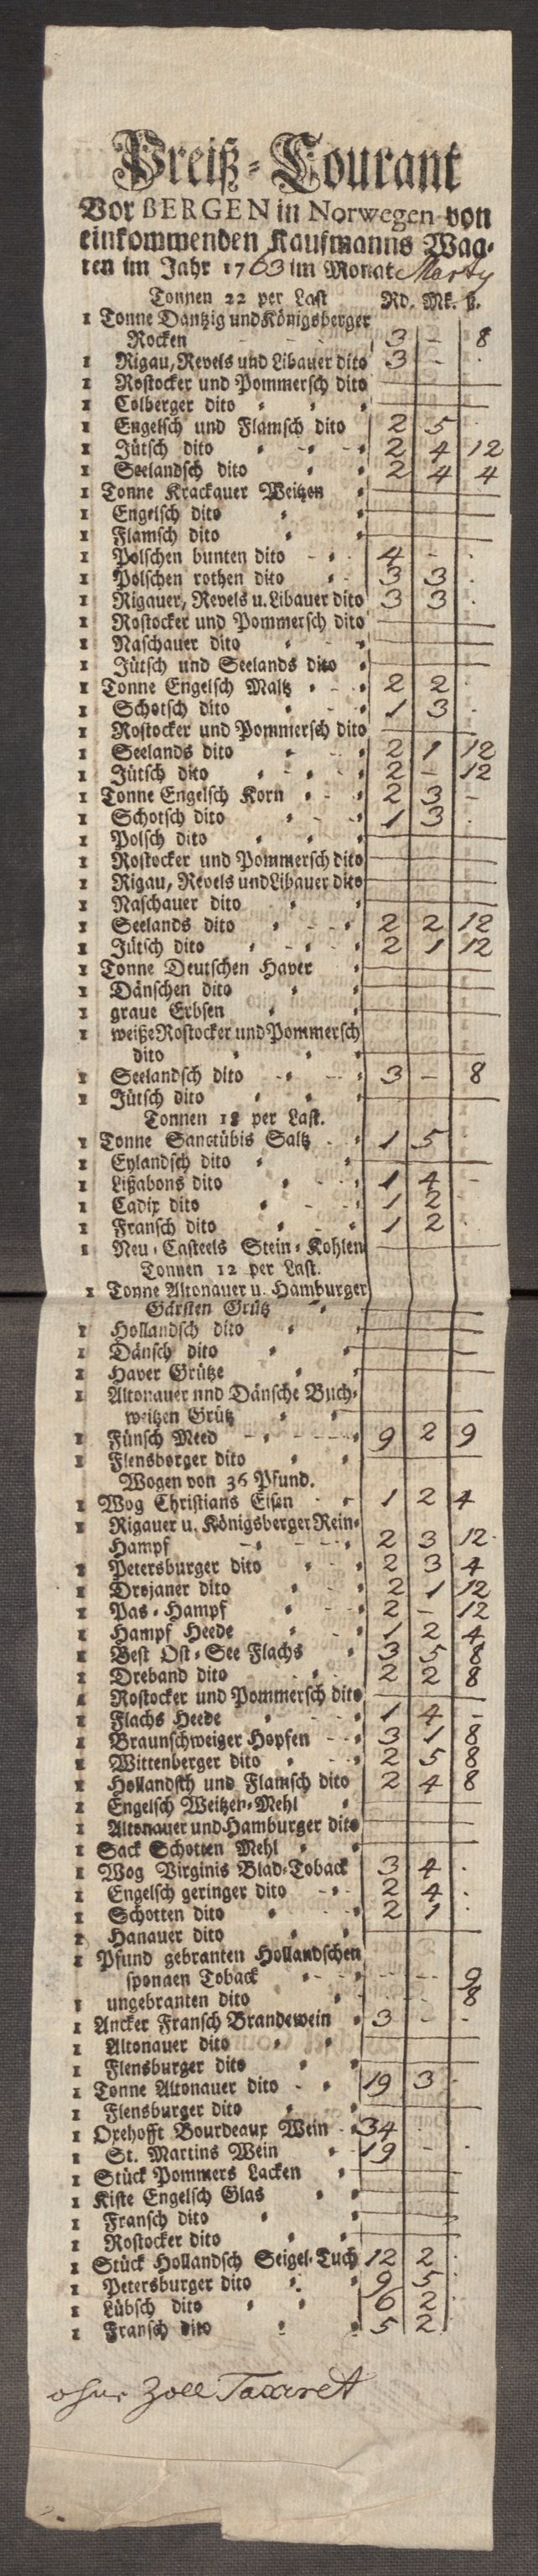 Preiß-Courant
Vor BERGEN in Norwegen von
einkommenden Kaufmanns Waa-
ren im Jahr 1763 im Monat Marty
Tonnen 22 per Last Rd. Mk. ß.
1 Tonne Dantzig und Königsberger
Rocken 3 - 8
1 Rigau, Revels und Libauer dito 3 - .
1 Rostocker und Pommersch dito
1 Colberger dito
1 Engelsch und Flamsch dito 2 5 .
1 Jütsch dito 2 4 12
1 Seelandsch dito 2 4 4
1 Tonne Krackauer Weitzen
1 Engelsch dito
1 Flamsch dito
1 Polschen bunten dito 4 - .
1 Polschen rothen dito 3 3 .
1 Rigauer, Revels u. Libauer dito 3 3 .
1 Rostocker und Pommersch dito
1 Naschauer dito
1 Jütsch und Seelands dito
1 Tonne Engelsch Maltz 2 2 .
1 Schotsch dito 1 3 .
1 Rostocker und Pommersch dito
1 Seelands dito 2 1 12
1 Jütsch dito 2 - 12
1 Tonne Engelsch Korn 2 3 -
1 Schotsch dito 1 3 .
1 Polsch dito
1 Rostocker und Pommersch dito
1 Rigau, Revels und Libauer dito
1 Naschauer dito
1 Seelands dito 2 2 12
1 Jütsch dito 2 1 12
1 Tonne Deutschen Haver
1 Dänschen dito
1 graue Erbsen
1 weiße Rostocker und Pommersch
dito
1 Seelandsch dito 3 - 8
1 Jütsch dito
Tonnen 18 per Last.
1 Tonne Sanctübis Saltz 1 5 .
1 Eylandsch dito
1 Lißabons dito 1 4 -
1 Cadix dito 1 2
1 Fransch dito 1 2 .
1 Neu-Casteels Stein-Kohlen
Tonnen 12 per Last.
1 Tonne Altonauer u. Hamburger
Gärsten Grütz
1 Hollandsch dito
1 Dänsch dito
1 Haver Grütze
1 Altonauer und Dänsche Buch-
weitzen Grütz
1 Fünsch Meed 9 2 9
1 Flensborger dito
Wogen von 36 Pfund.
1 Wog Christians Eisen 1 2 4
1 Rigauer u. Königsberger Rein-
Hampf 2 3 12
1 Petersburger dito 2 3 4
1 Drojaner dito 2 1 12
1 Pas-Hampf 2 - 12
1 Hampf Heede 1 2 4
1 Best Ost-See Flachs 3 5 8
1 Dreband dito 2 2 8
1 Rostocker und Pommersch dito
1 Flachs Heede 1 4 -
1 Braunschweiger Hopfen 3 1 8
1 Wittenberger dito 2 5 8
1 Hollandsch und Flamsch dito 2 4 8
1 Engelsch Weitzen-Mehl
1 Altonauer und Hamburger dito
1 Sack Schotten Mehl
1 Wog Virginis Blad-Toback 3 4 .
1 Engelsch geringer dito 2 4 .
1 Schotten dito 2 1 .
1 Hanauer dito
1 Pfund gebranten Hollandschen
sponnen Toback - - 9
1 ungebranten dito - - 8
1 Ancker Fransch Brandewein 3 - -
1 Altonauer dito
1 Flensburger dito
1 Tonne Altonauer dito 19 3 .
1 Flensburger dito
1 Oxehofft Bourdeaux Wein 34 .
1 St. Martins Wein 19 - .
1 Stück Pommers Lacken
1 Kiste Engelsch Glas
1 Fransch dito
1 Rostocker dito
1 Stück Hollandsch Seigel-Tuch 12 2 .
1 Petersburger dito 9 5 .
1 Lübsch dito 6 2 .
1 Fransch dito 5 2 .
ohne Zoll Taxeret